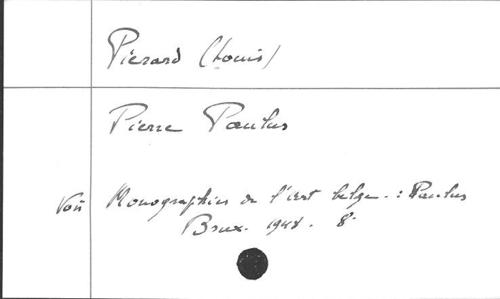 Piérard (Louis)
Pierre Paulus
Voir Monographies de l'art belge. : Paulus
Brux. 1948. 8°